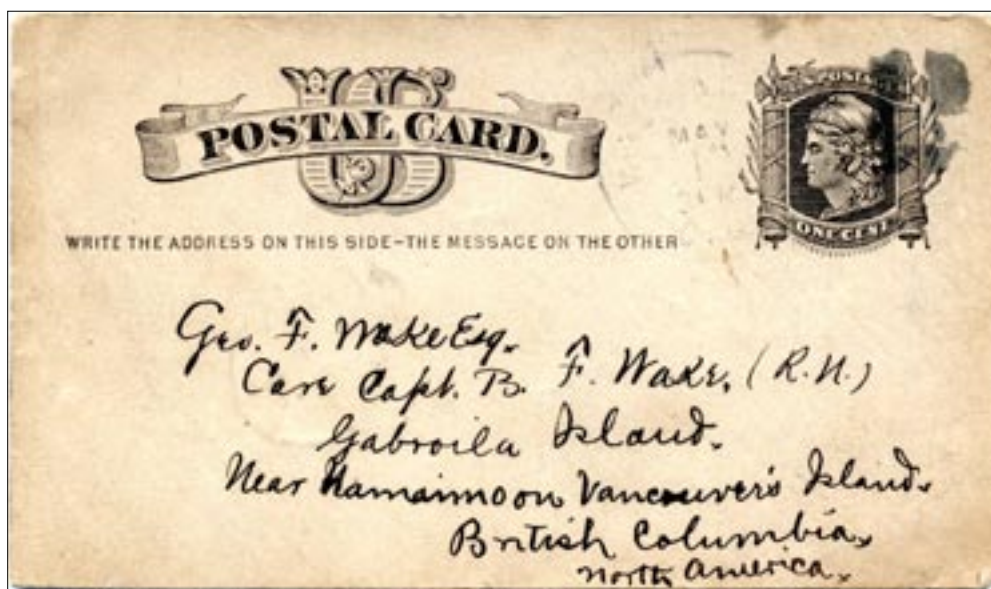 US
POSTAL CARD.
U.S. POSTAGE
ONE CENT
WRITE THE ADDRESS ON THIS SIDE-THE MESSAGE ON THE OTHER
MAY
Geo. F. Wake Esq.
Care Capt. B. F. Wake. (R.N.)
Gabroila Island.
Near Namaimoon Vancouver's Island.
British Columbia.
North America.